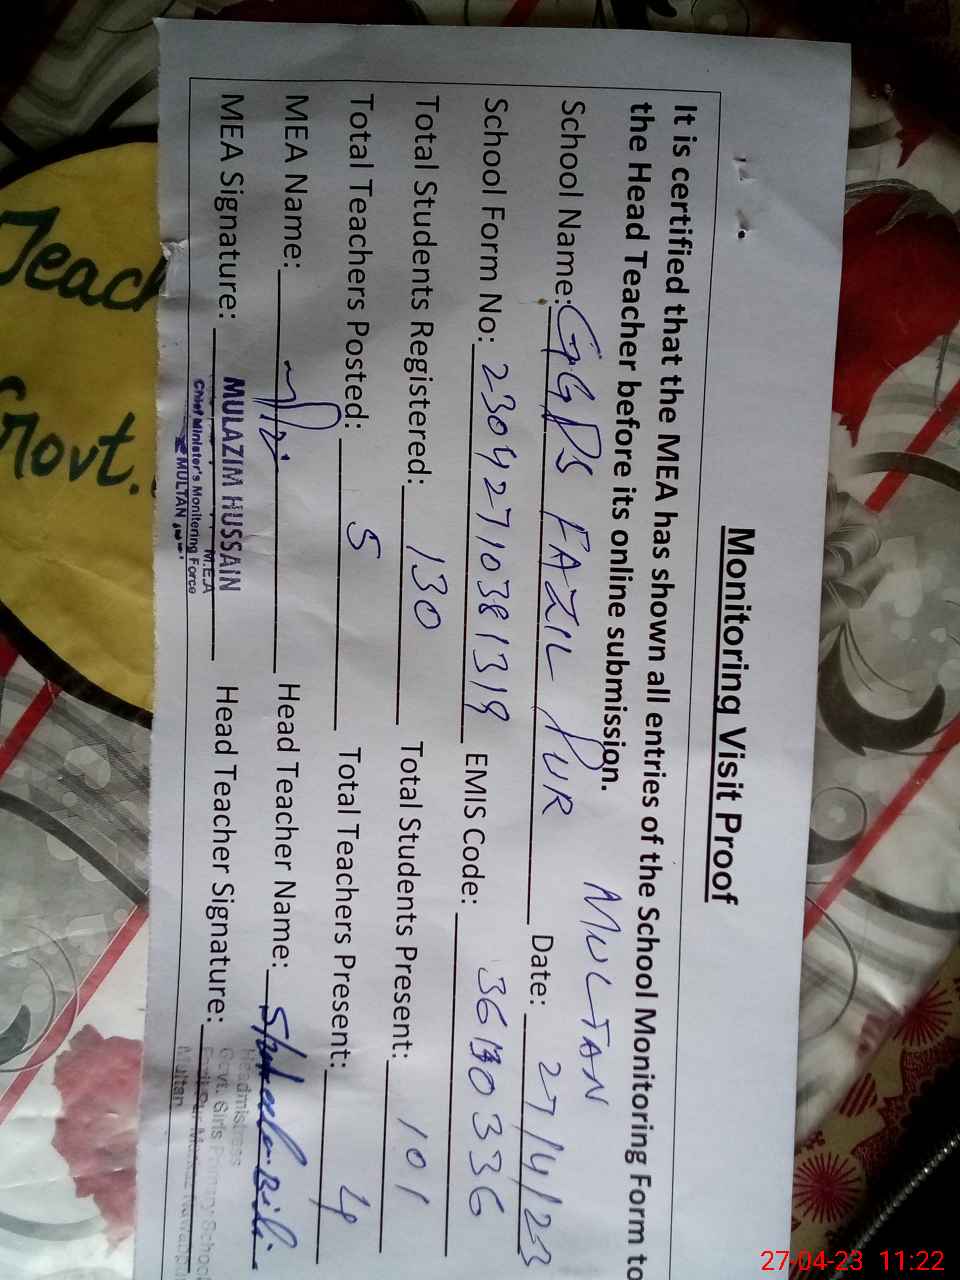 Monitoring Visit Proof
It is certified that the MEA has shown all entries of the School Monitoring Form to
the Head Teacher before its online submission.
MULTAN
School Name: GGPS FAZIL PUR Date: 27/4/23
School Form No: 23042710381319 EMIS Code: 36130336
Total Students Registered: 130 Total Students Present: 101
Total Teachers Posted: 5 Total Teachers Present: 4
MEA Name: Head Teacher Name:
MEA Signature: MULAZIM HUSSAIN Head Teacher Signature:
M.E.A
Chief Minister's Monitoring Force
MULTAN
Headmistress
Govt. Girls Primary School
Multan
Teach
Govt.
27-04-23 11:22